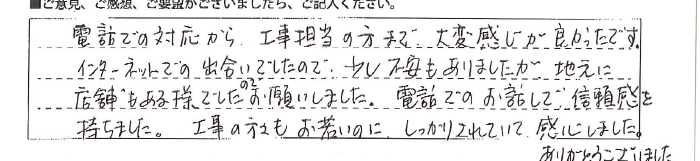 ■ご意見、ご感想、ご要望がございましたら、ご記入ください。
電話での対応から、工事担当の方まで、大変感じが良かったです。
インターネットでの出合いでしたので、少し不安もありましたが、地元に
店舗もある様でしたのでお願いしました。電話でのお話しで信頼感を
持ちました。工事の方もお若いのに、しっかりされていて感心しました。
ありがとうございました